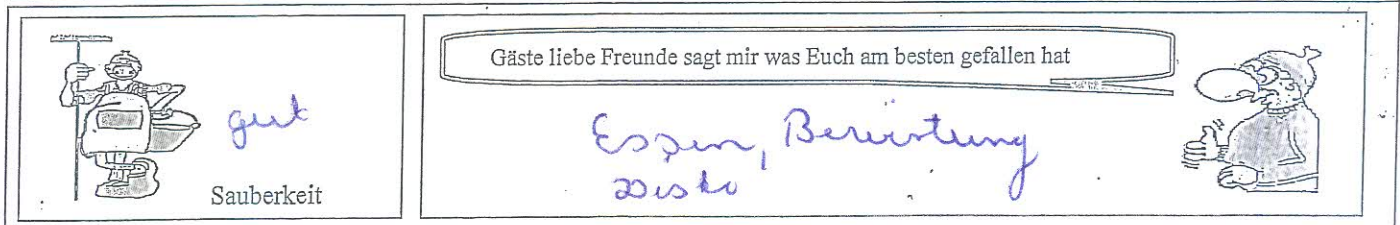 gut
Sauberkeit
Gäste liebe Freunde sagt mir was Euch am besten gefallen hat
Essen, Bewirtung
Disko